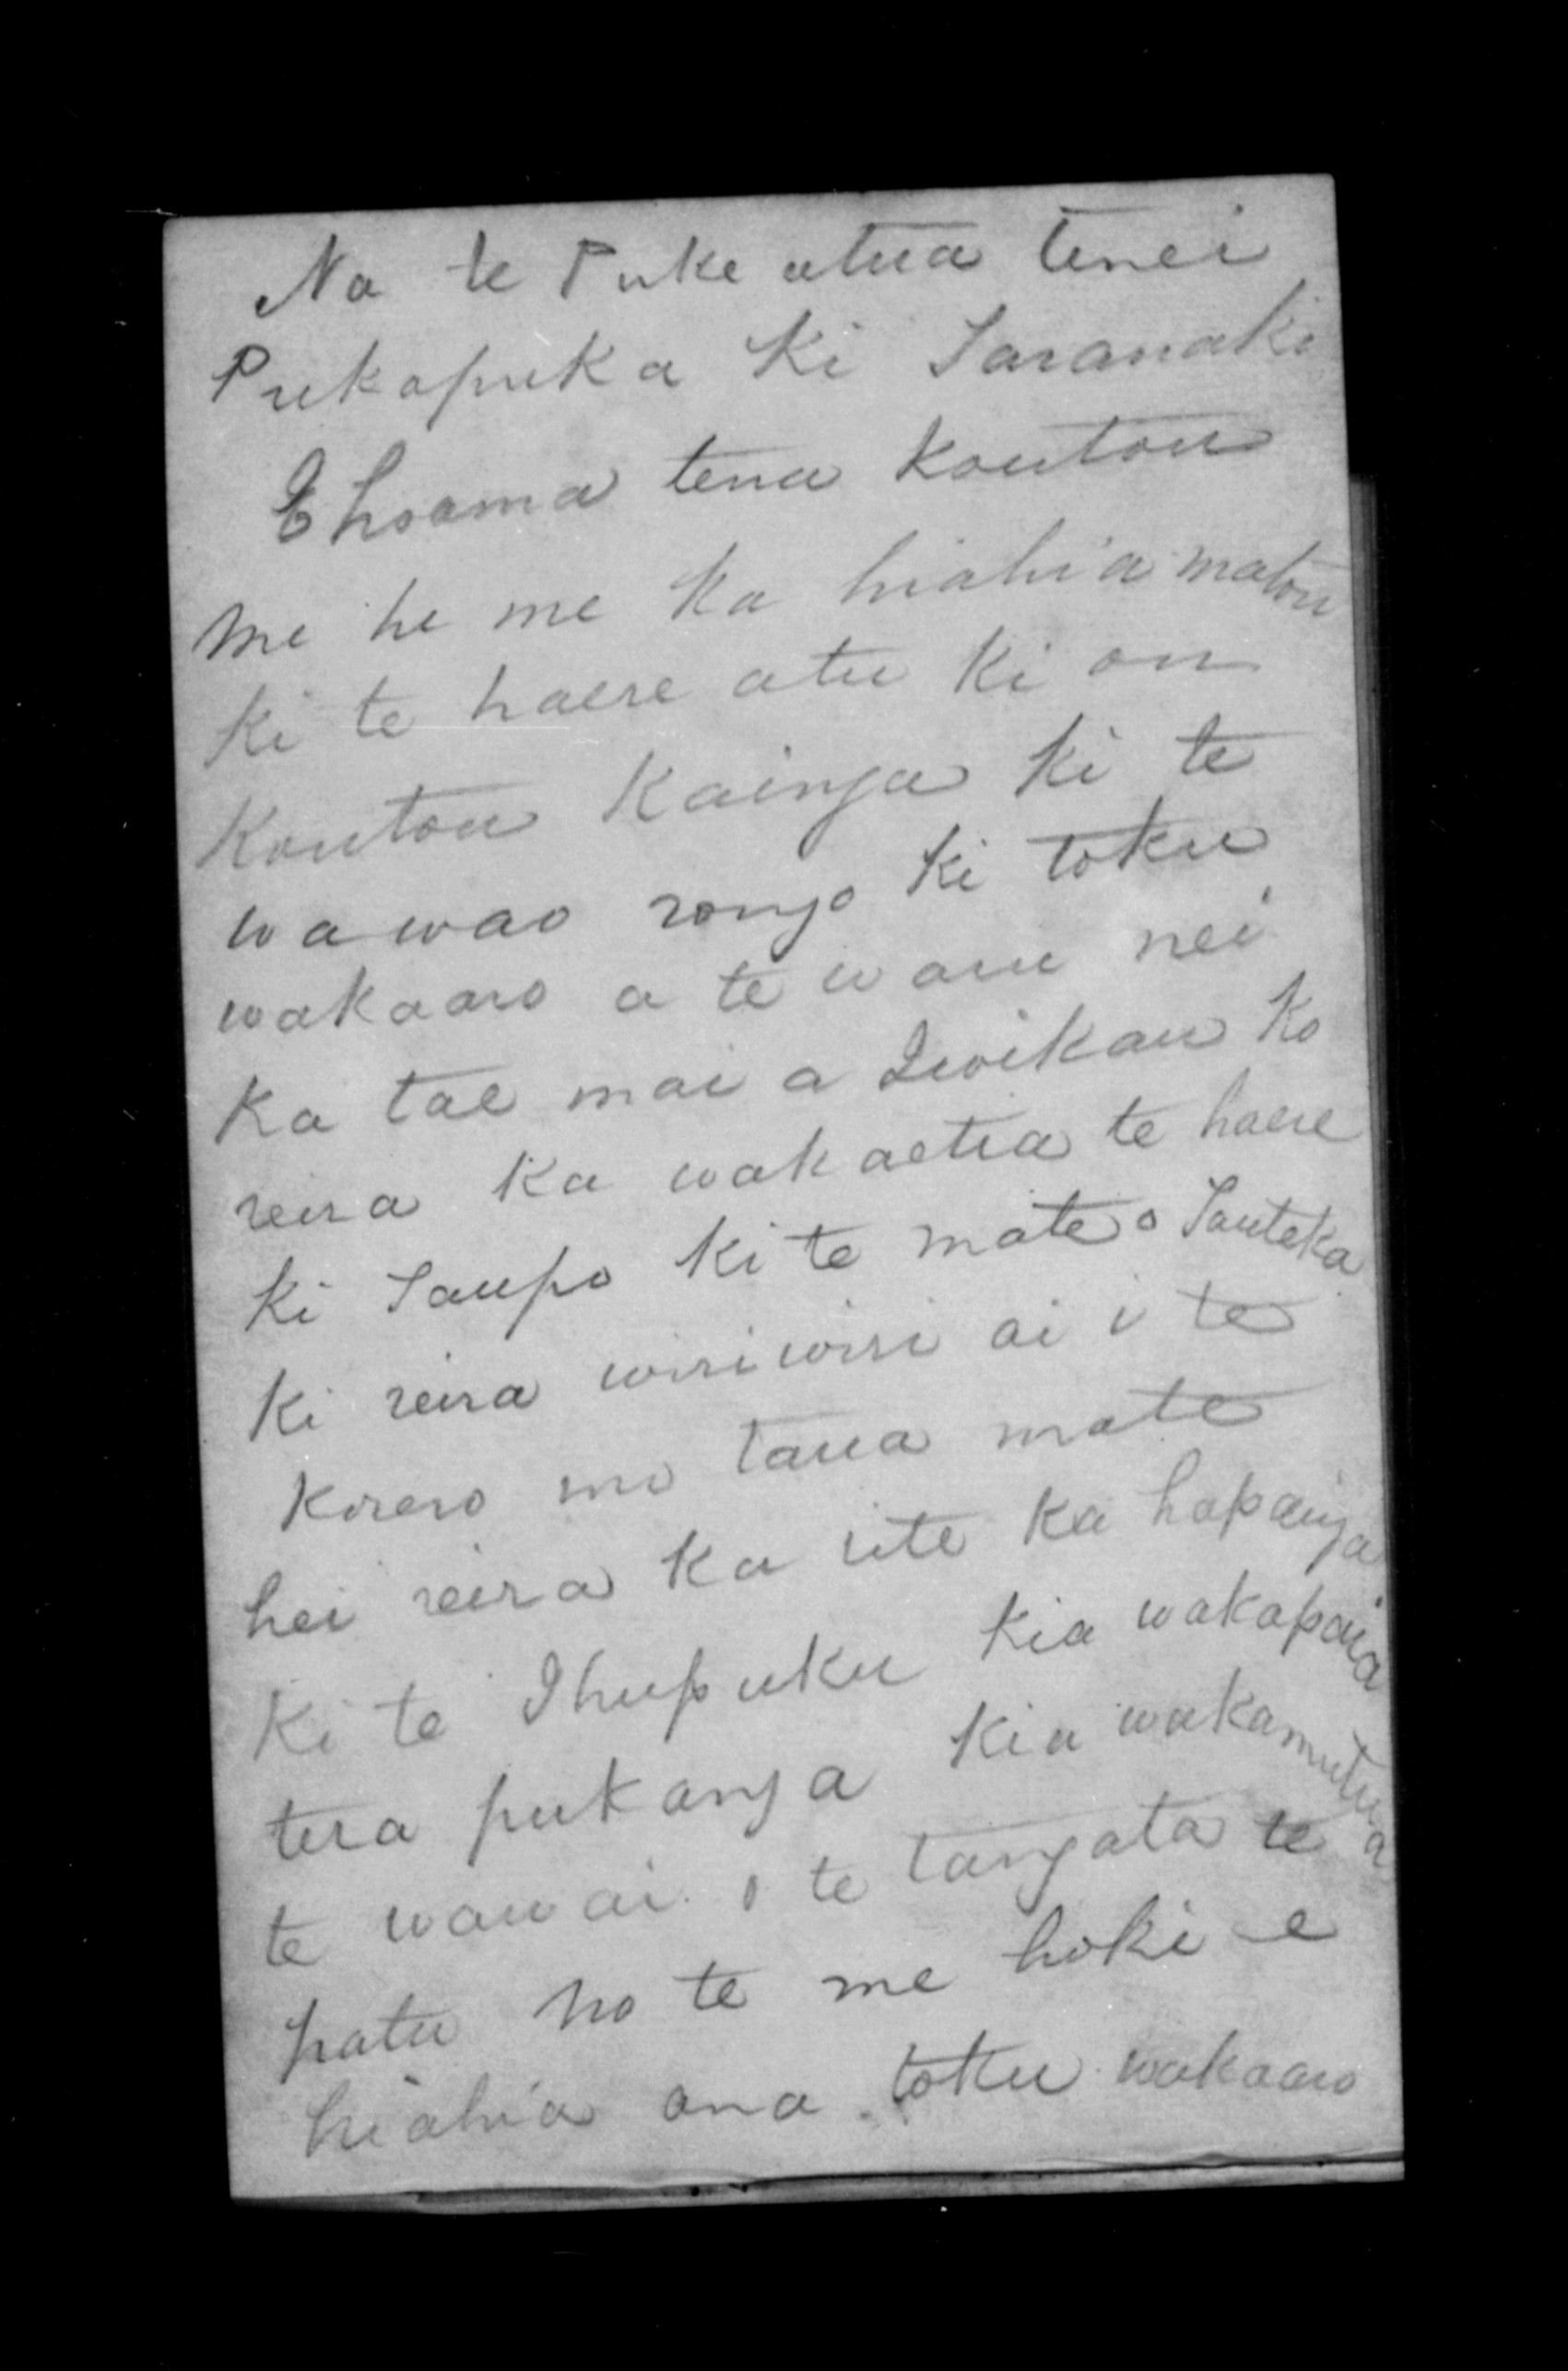 Na te Puke atua tenei
Pukapuka ki Taranaki
E hoama tena koutou
me he me ka hiahia matou
ki te haere atu ki ou
koutou kainga ki te
wawao rongo ki toku
wakaaro a te waru nei
ka tae mai a Iwikau ko
reira ka wakaetia te haere
ki Taupo ki te mate o Tauteka
ki reira wiriwiri ai i te
korero mo taua mate
hei reira ka rite ka hapainga
ki te Ihupuku kia wakapaia
tera pukanga kia wakamutua
te wawai o te tangata te
patu no te me hoki e
hiahia ana toku wakaaro